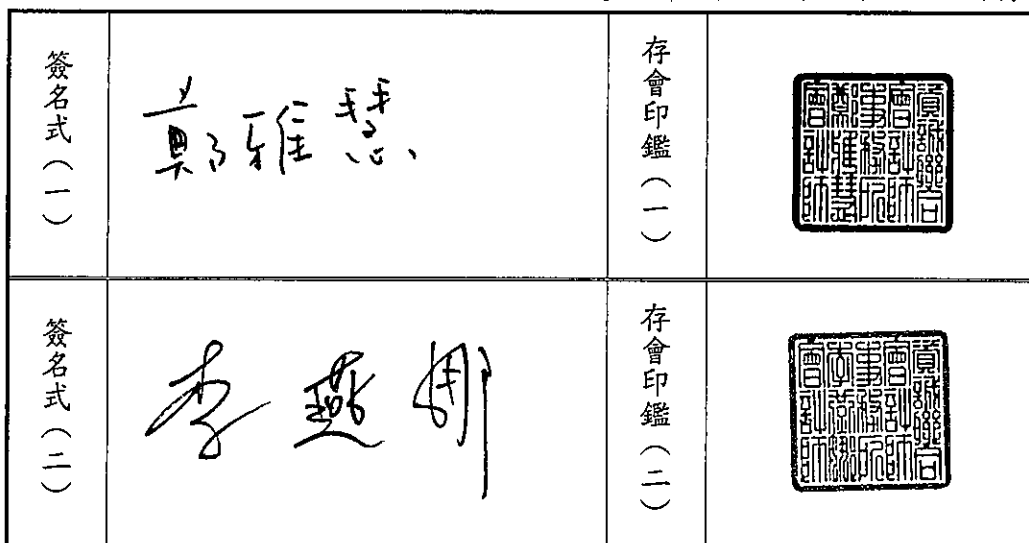 簽名式（一）
鄭雅慧
存會印鑑（一）
資誠聯合
會計師
事務所
鄭雅慧
會計師
簽名式（二）
李燕娜
存會印鑑（二）
資誠聯合
會計師
事務所
李燕娜
會計師